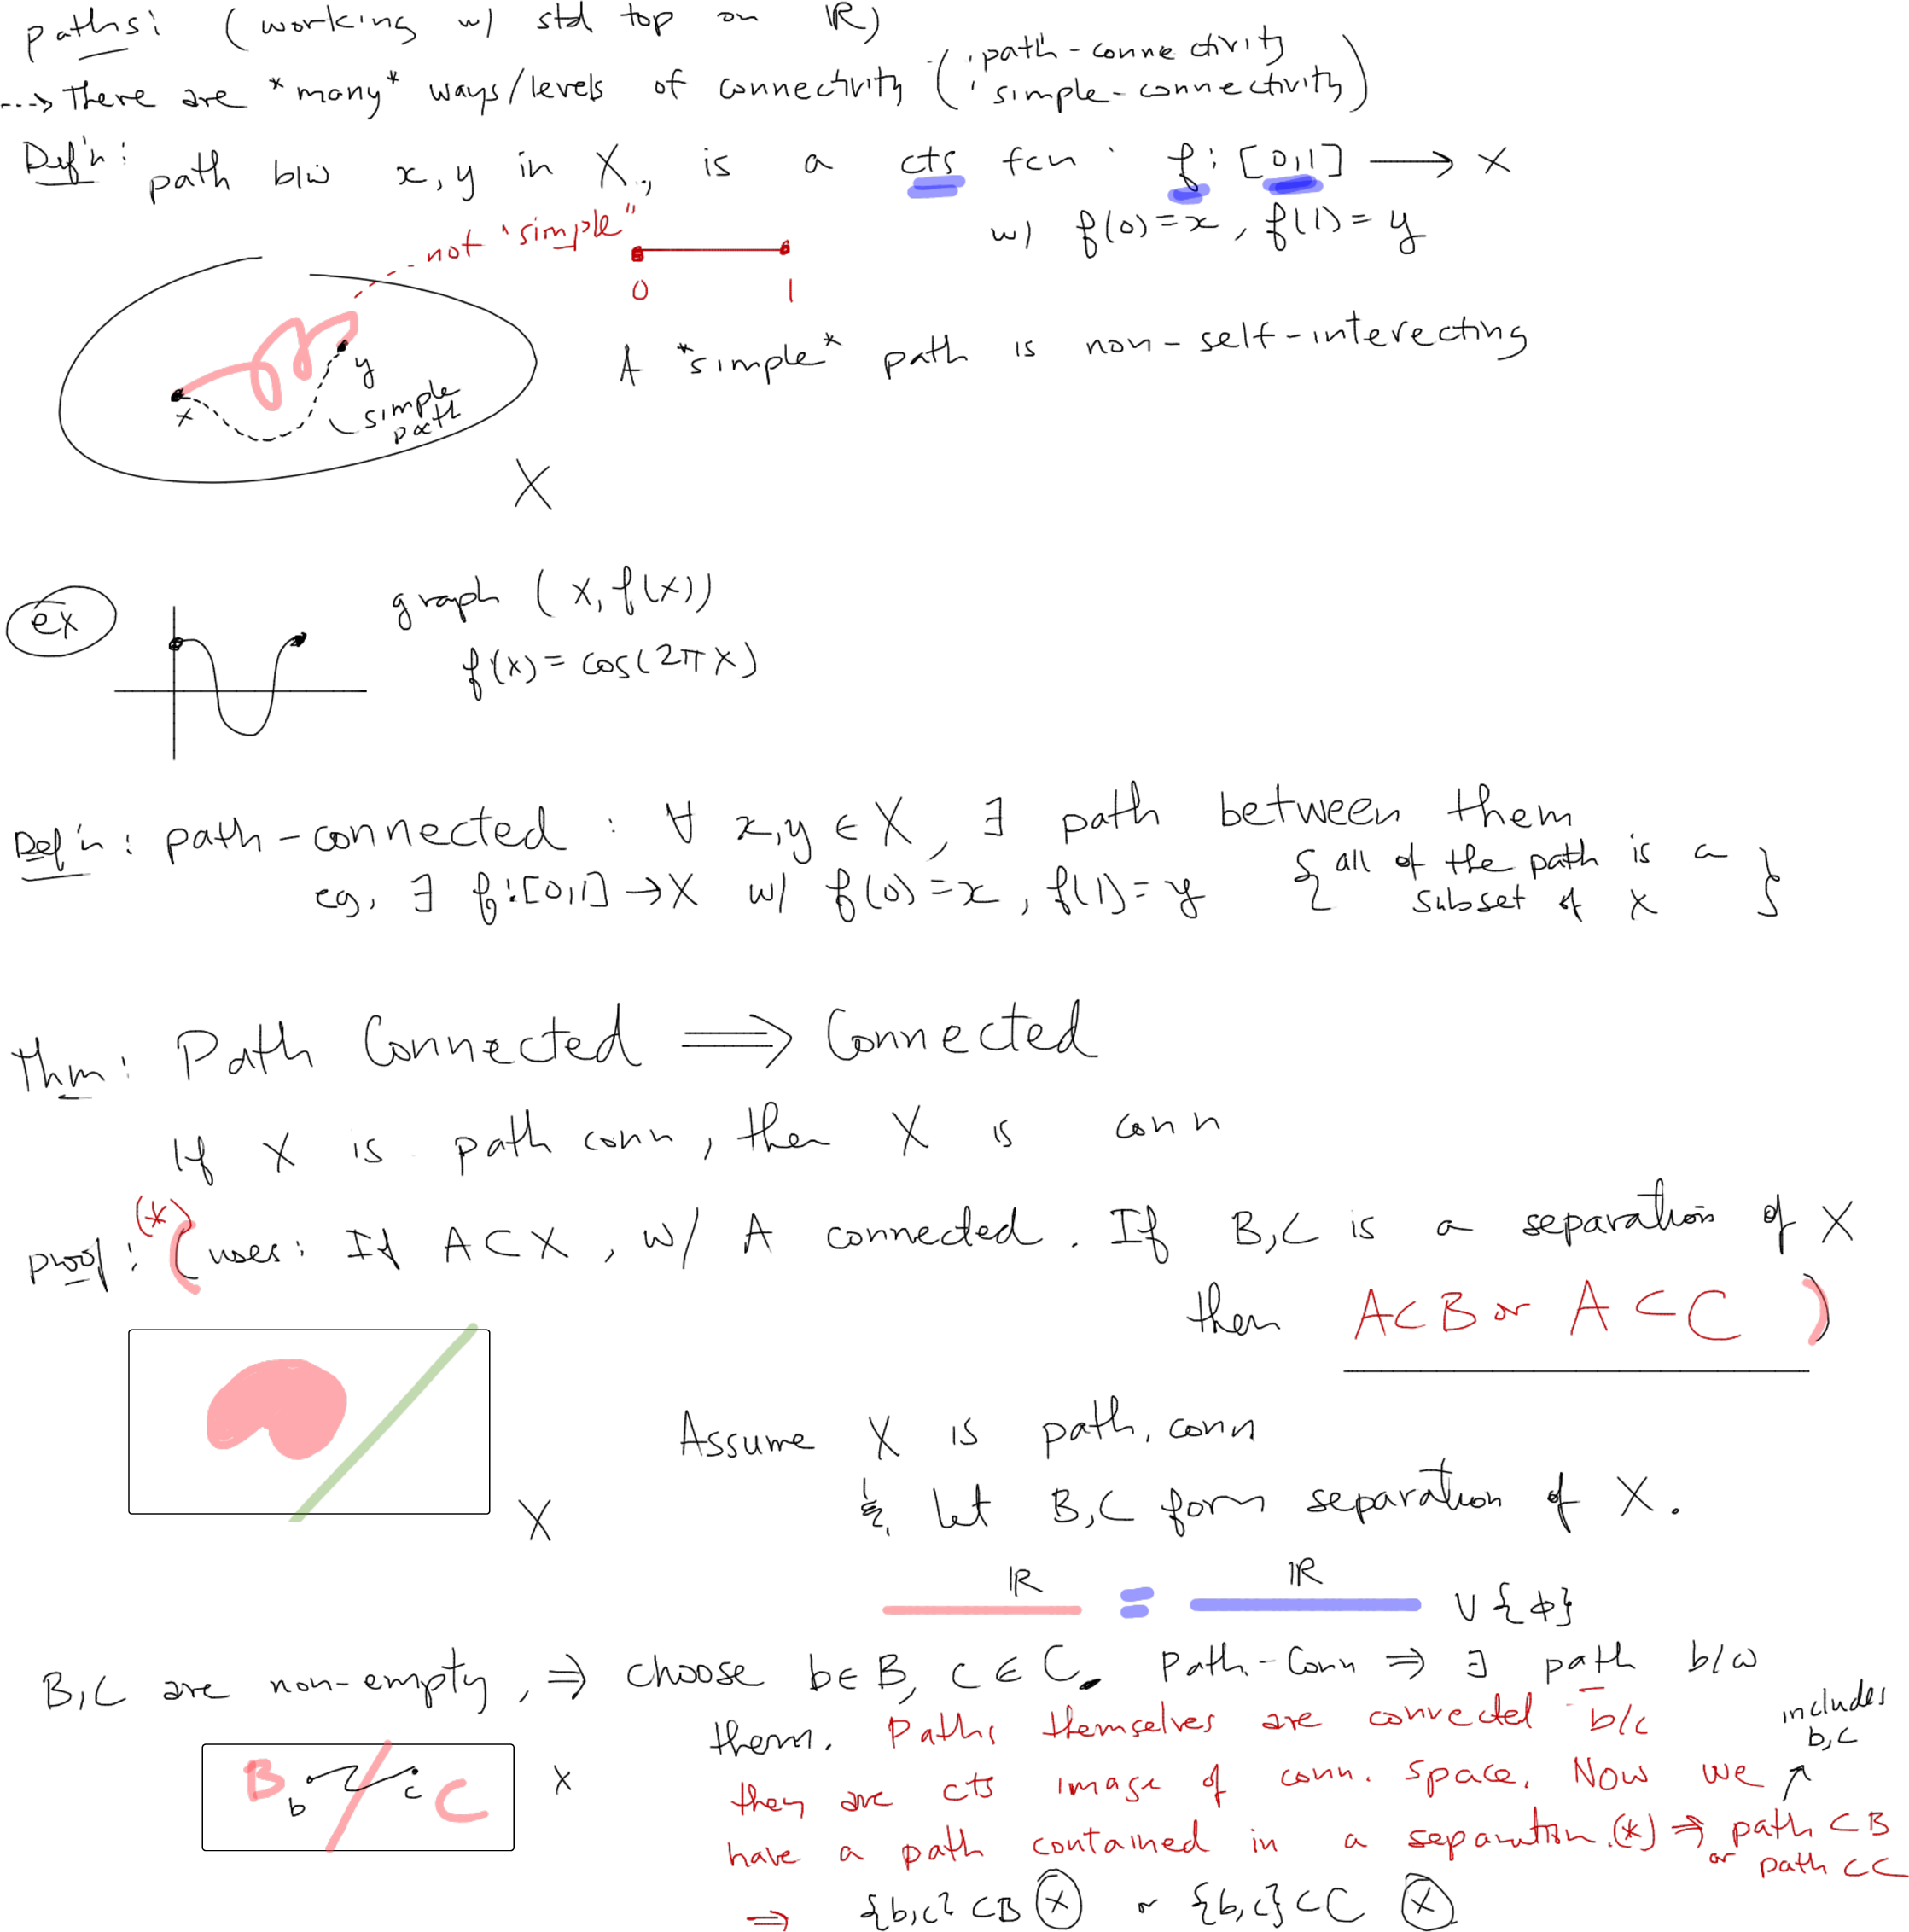 paths: (working w/ std top on ℝ)
---> There are *many* ways/levels of connectivity (· path-connectivity
· simple-connectivity)
Def'n: path b/w x, y in X, is a cts fcn f: [0,1] ⟶ X
w/ f(0)=x, f(1)=y
not "simple"
0 1
A *simple* path is non-self-interecting
x
y
simple
path
X
ex
graph (x, f(x))
f(x) = cos(2πx)
Def'n: path-connected : ∀ x,y ∈ X, ∃ path between them
eg, ∃ f:[0,1] → X w/ f(0)=x, f(1)=y { all of the path is a
subset of X }
Thm: Path Connected ⟹ Connected
If X is path conn, then X is conn
proof: (*) (uses: If A⊂X, w/ A connected. If B,C is a separation of X
then A⊂B or A⊂C )
X
Assume X is path. conn
& let B,C form separation of X.
ℝ = ℝ ∪ {ϕ}
B,C are non-empty, ⇒ choose b∈B, c∈C. Path-Conn ⇒ ∃ path b/w
them. Paths themselves are connected b/c
includes
b,c
they are cts image of conn. space. Now we
have a path contained in a separation. (*) ⇒ path ⊂B
or path ⊂C
B b c C X
⇒ {b,c} ⊂B ⊗ or {b,c}⊂C ⊗